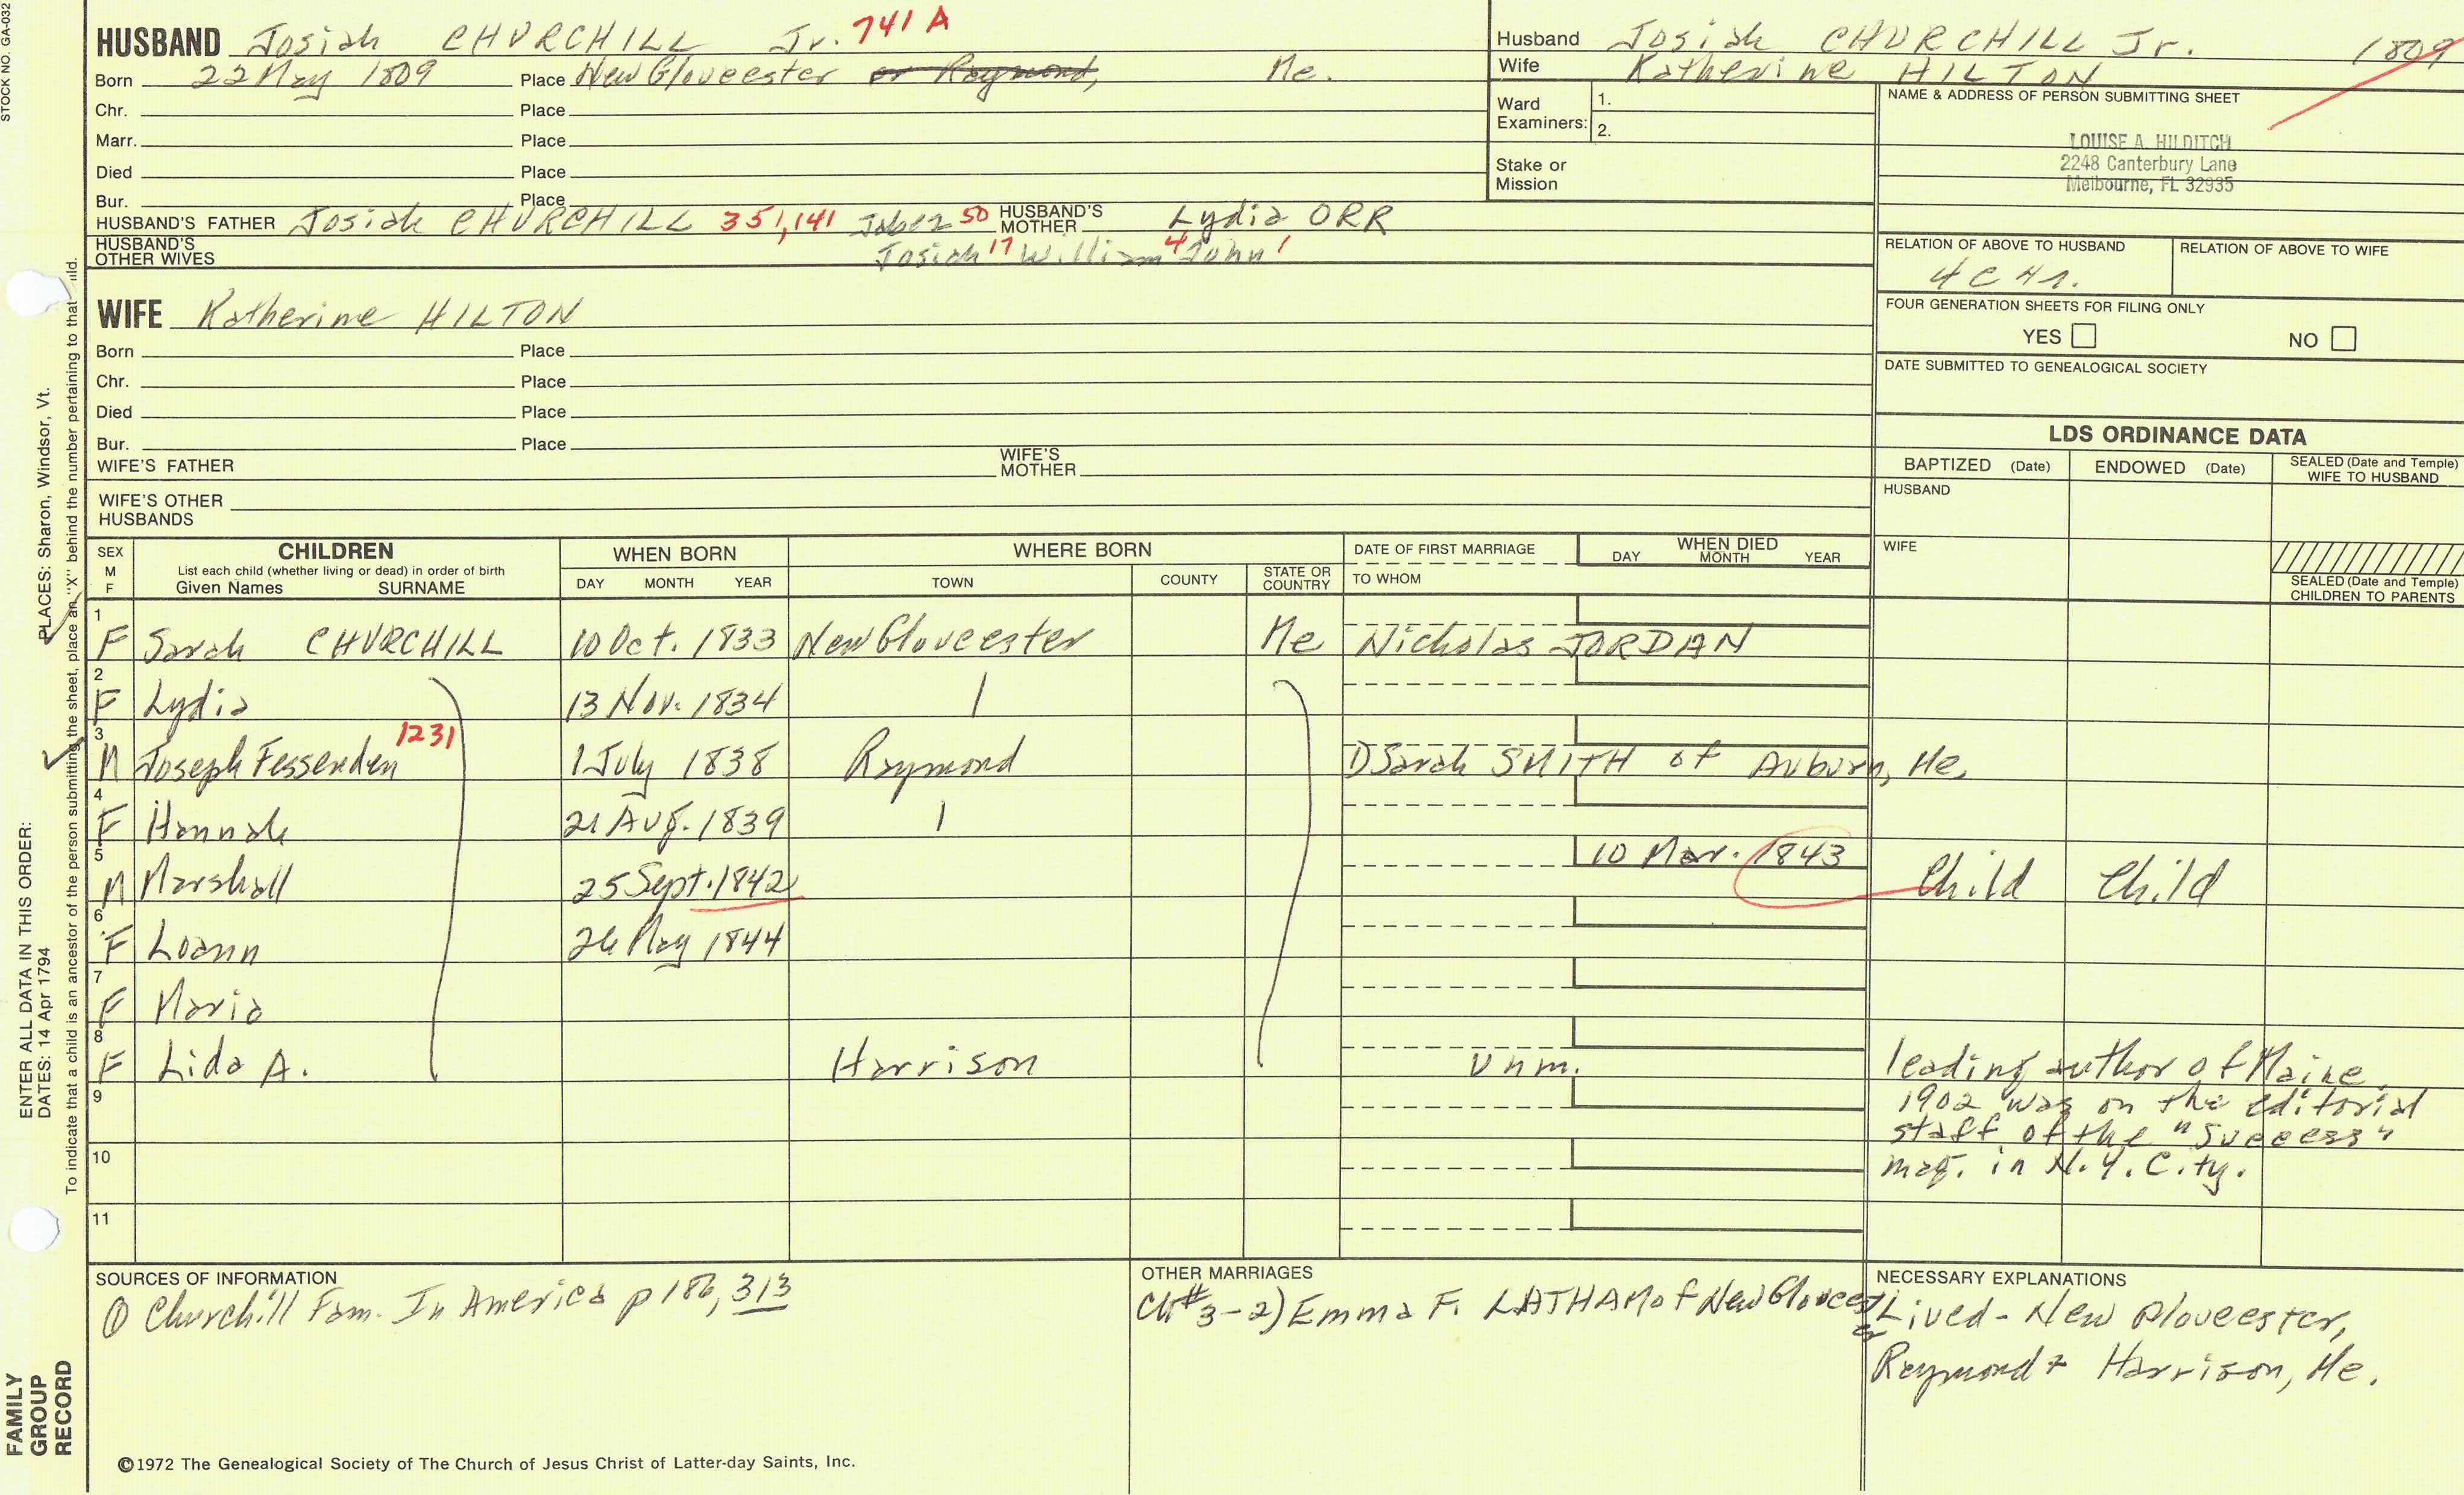 STOCK NO. GA-032
HUSBAND Josiah CHURCHILL Jr. 741 A
Born 22 May 1809 Place New Gloucester or Raymond, Me.
Chr. Place
Marr. Place
Died Place
Bur. Place
HUSBAND'S FATHER Josiah CHURCHILL 351,141 Jabez 50 HUSBAND'S MOTHER Lydia ORR
HUSBAND'S OTHER WIVES Josiah 17 William 4 John 1
Husband Josiah CHURCHILL Jr. 1809
Wife Katherine HILTON
Ward Examiners: 1.
2.
Stake or Mission
NAME & ADDRESS OF PERSON SUBMITTING SHEET
LOUISE A. HILDITCH
2248 Canterbury Lane
Melbourne, FL 32935
RELATION OF ABOVE TO HUSBAND RELATION OF ABOVE TO WIFE
4C 4r.
FOUR GENERATION SHEETS FOR FILING ONLY
YES NO
DATE SUBMITTED TO GENEALOGICAL SOCIETY
WIFE Katherine HILTON
Born Place
Chr. Place
Died Place
Bur. Place
WIFE'S FATHER WIFE'S MOTHER
WIFE'S OTHER HUSBANDS
LDS ORDINANCE DATA
BAPTIZED (Date) ENDOWED (Date) SEALED (Date and Temple) WIFE TO HUSBAND
HUSBAND
WIFE
SEALED (Date and Temple) CHILDREN TO PARENTS
SEX M F CHILDREN List each child (whether living or dead) in order of birth Given Names SURNAME WHEN BORN DAY MONTH YEAR WHERE BORN TOWN COUNTY STATE OR COUNTRY DATE OF FIRST MARRIAGE TO WHOM WHEN DIED DAY MONTH YEAR
1 F Sarah CHURCHILL 10 Oct. 1833 New Gloucester Me Nicholas JORDAN
2 F Lydia 13 Nov. 1834
3 M Joseph Fessenden 1231 1 July 1838 Raymond 1) Sarah SMITH of Auburn, Me.
4 F Hannah 21 Aug. 1839
5 M Marshall 25 Sept. 1842 10 Mar. 1843 Child Child
6 F Loann 26 May 1844
7 F Maria
8 F Lida A. Harrison unm. leading author of Maine.
1902 was on the editorial
staff of the "Success"
mag. in N.Y. City.
9
10
11
SOURCES OF INFORMATION
① Churchill Fam. In America p 186, 313
OTHER MARRIAGES
Ch #3-2) Emma F. LATHAM of New Gloucester
NECESSARY EXPLANATIONS
Lived - New Gloucester,
Raymond + Harrison, Me.
©1972 The Genealogical Society of The Church of Jesus Christ of Latter-day Saints, Inc.
ENTER ALL DATA IN THIS ORDER:
DATES: 14 Apr 1794 PLACES: Sharon, Windsor, Vt.
To indicate that a child is an ancestor of the person submitting the sheet, place an "X" behind the number pertaining to that child.
FAMILY
GROUP
RECORD